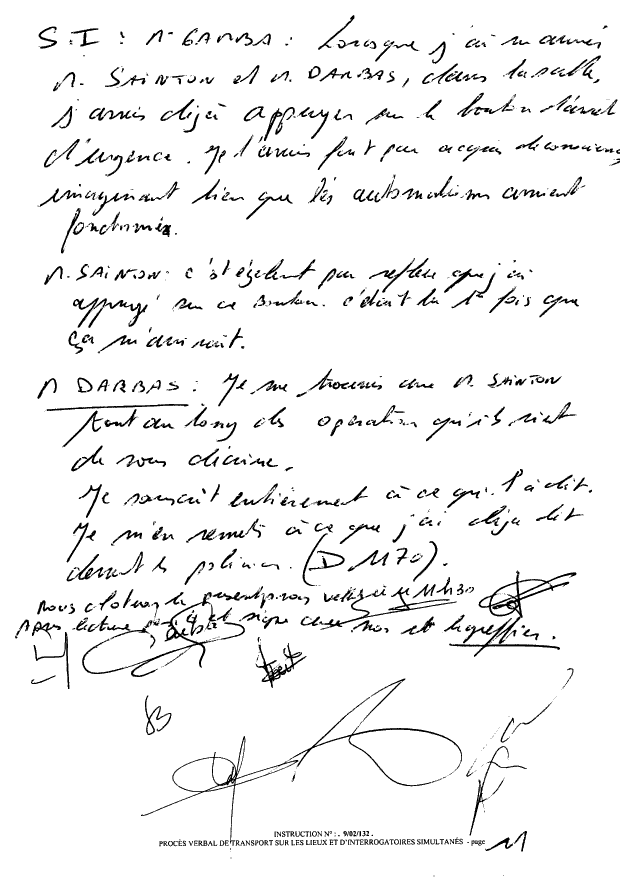 S.I : M GAMBA : Lorsque j'ai
M. SAINTON et M. DARBAS, dans la salle,
j'avais déjà appuyer sur le bouton d'arret
d'urgence. Je l'avais fait par acquis de conscience
imaginant bien que les automatismes avaient
fonctionnés.
M. SAINTON : c'est par reflexe que j'ai
appuyé sur ce Bouton. c'était la 1e fois que
ça m'arrivait.
M DARBAS : Je me trouvais avec M. SAINTON
tout au long des operation qu'ils vient
de vous décrire.
Je souscrit entièrement à ce qu'il a dit.
Je m'en remets à ce que j'ai déja dit
devant les policiers. (D 1170).
Nous cloturons le present procès verbal à 11H30
Après lecture et signe avec nos et le greffier.
INSTRUCTION N° : . 9/02/132 .
PROCÈS VERBAL DE TRANSPORT SUR LES LIEUX ET D'INTERROGATOIRES SIMULTANÉS - page 11